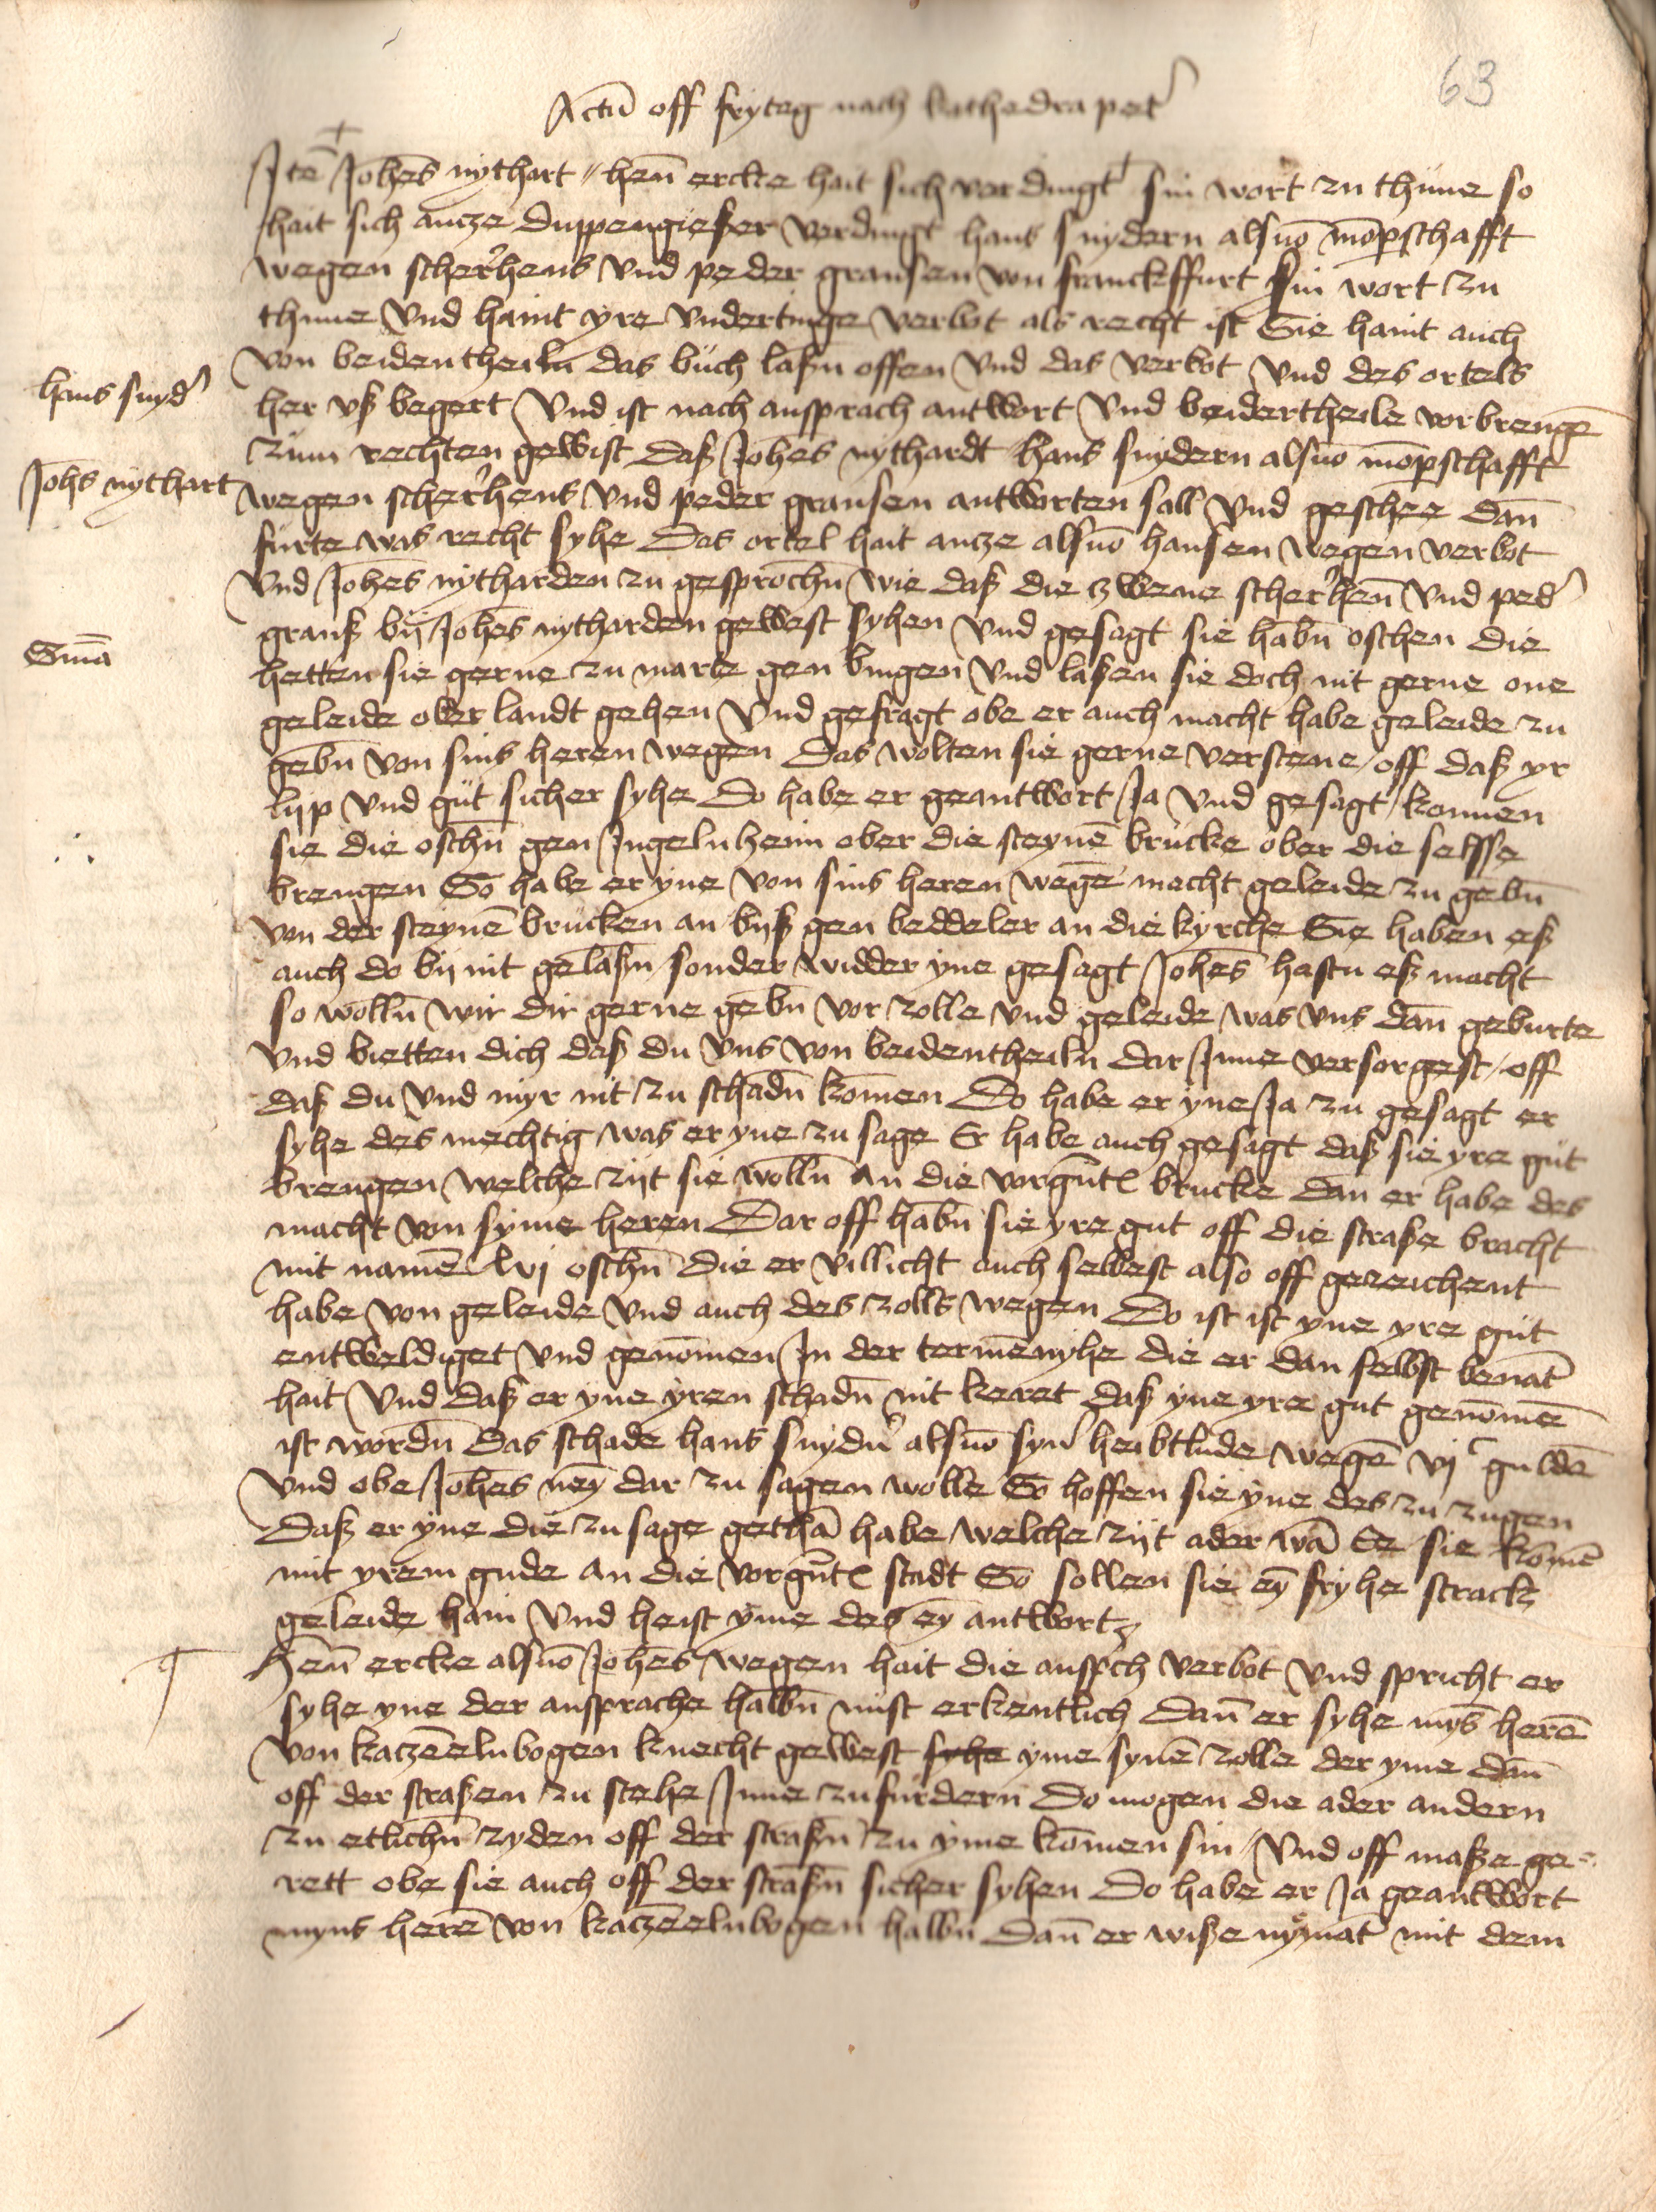 63
Actū off frytag nach kathedra pet͛
Itē Johēs nythart // henn̄ ercke hait sich verdingt sin wort zu thune so
hait sich antze duppengießer verdingt hans snydern alsūo mōperschafft
wegen scher͛hens vnd peder graußen von franckffurt sin wort zu
thune vnd haint yre vndertinge verbot als recht ist Sie haint auch
von beidentheiln das büch laßn̄ offen vnd das verbot vnd des ortels
her vß begert vnd ist nach ansprach antwort vnd beidertheile vorbrengē
zum rechten gewist daß Johēs nythardt hans snydern alsūo mōperschafft
wegen scher͛hens vnd peder graußen antworten sall vnd geschee dan̄
furte was recht syhe Das ortel hait antze alsūo hansen wegen verbot
vnd Johēs nytharden zu gesprochn̄ wie daß die zwene scher͛hen̄ vnd ped͛
grauß bij Johēs nytharden gewest syhen vnd gesagt sie habn̄ oschen die
hetten sie gerne zu marte gen bingen vnd laßen sie doch nit gerne one
geleide ober landt gehen vnd gefragt obe er auch macht habe geleide zu
gebn̄ von sins heren wegen Das wolten sie gerne verstene off daß yr
lijp vnd güt sicher syhe Do habe er geantwort Ja vnd gesagt konnen
sie die oschn̄ gen Ingelnheim ober die steynē brücke ober die selsse
brengen So habe er yne von sins heren wegē macht geleide zu gebn̄
von der steynē brucken an bijß gen beddeler an die kyrche Sie haben eß
auch do bij nit gelaßn̄ sonder widder yne gesagt Johēs hastu eß macht
so wolln̄ wir dir gerne gebn̄ vor zolle vnd geleide was vns dan̄ geburte
vnd bietten dich daß du vns von beidentheiln dar Inne versorgest off
daß du vnd myr nit zu schadn̄ kōmen Do habe er yne Ja zu gesagt er
syhe des mechtig was er yne zu sage Er habe auch gesagt daß sie yre güt
brengen welche zijt sie wolln̄ an die vorgn̄t brucke dan er habe des
macht von syme heren Dar off habn̄ sie yre gut off die straße bracht
mit namē lvj oschn̄ die er villicht auch selbest also off gezeichent
habe von geleide vnd auch des zolls wegen Do ist ist yne yre güt
entweldiget vnd genōmen In der termēnyhe die er dan selbst benāt
hait vnd daß er yne yren schadn̄ nit keret daß yne yre gut genōmē
ist wordn̄ Das schade hans snydn̄ alsūo syn͛ heibtlude wegē vj c guldē
vnd obe Johēs ney dar zu sagen wolle So hoffen sie yne des zu zugen
Daß er yne die zu sage gethā habe welche zijt ader wā Ee sie kōmē
mit yrem gude an die vorgn̄t stadt So sollen sie ey fryhe strack
geleide hain vnd heist yme des ey antwort
Hen̄ ercke alsūo Johēs wegen hait die anspch verbot vnd spricht er
syhe yne der ansprache halbn̄ nust erkentlich Dan̄ er syhe mȳs herē
von katzēelnbogen knecht gewest syhe yme synē zolle der yme dan̄
off der straßen zu stehe Inne zufurdern Do mogen die ader andern
zu etlichn̄ zyden off der straßn̄ zu yme kōmen sin vnd off maße ge-
rett obe sie auch off der straßn̄ sicher syhen Do habe er Ja geantwort
myns herē von katzēelnbogen halbn̄ Dan̄ er wiße nymāt mit dem
hans snyd͛
Johs nythart
Smā